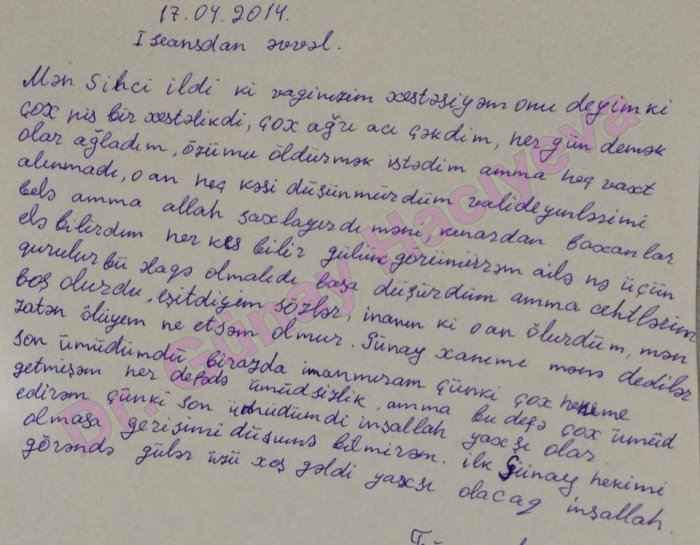 17.04.2014.
I seansdan əvvəl.
Mən sikci ildi ki vaginizim xestəsiyəm onu deyim ki
çox pis bir xestəlikdi, çox ağrı acı çəkdim, her gün demək
olar ağladım, özümü öldürmək istədim amma heç vaxt
alınmadı, o an heç kəsi düşünmürdüm valideynlərimi
belə amma allah saxlayırdı məni kenardan baxanlar
elə bilirdim her kes bilir gülünc görünürrəm ailə nə üçün
qurulur bu əlagə olmalıdı başa düşürdüm amma cehtlərim
boş olurdu, eşitdiyem sözlər, inanın ki o an ölurdüm, mən
zatən ölüyem ne etsəm olmur. Günay xanıme mənə dedilər
son ümüdümdü birazda inanmıram çünki çox hekime
getmişəm her defədə ümüdsizlik. amma bu defə çox ümüd
edirəm çünki son ümüdümdi inşallah yaxşı olar.
olmasa gerisini düşünə bilmirəm. ilk Günay hekimi
görəndə gülər üzü xoş gəldi yaxşı olacaq inşallah.
Dr. Günay Hacıyeva